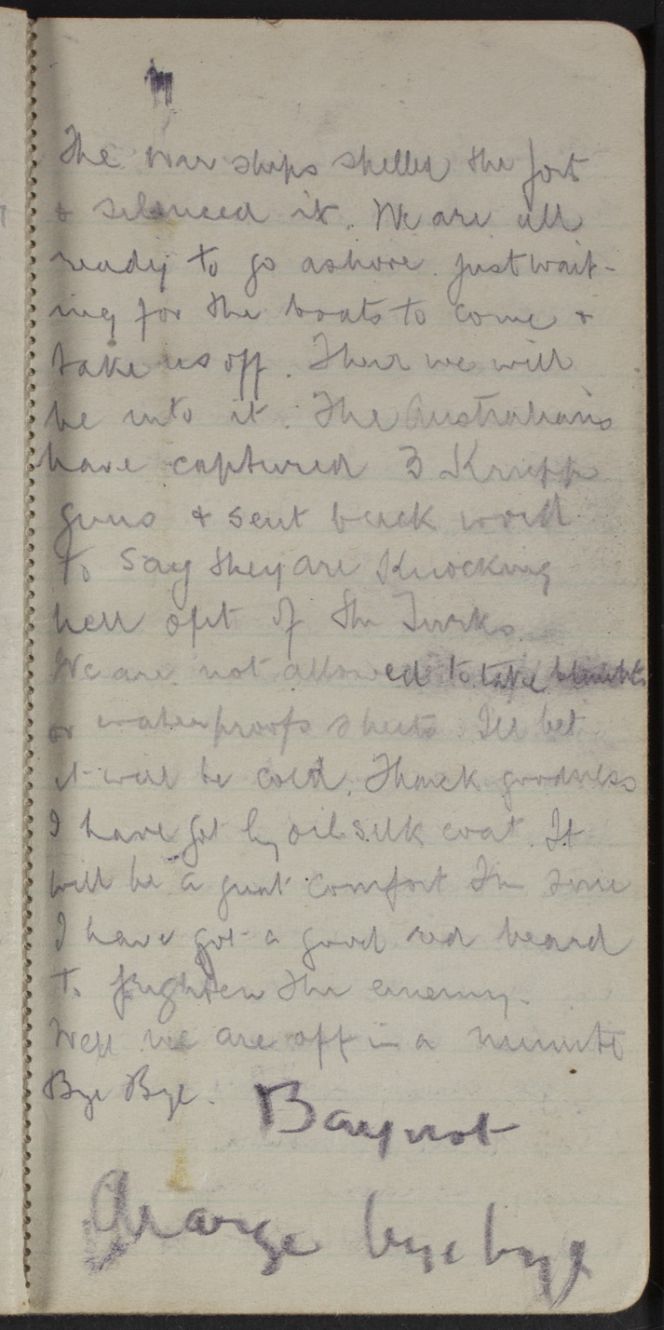 The war ships shelled the fort
& silenced it. We are all
ready to go ashore. Just wait-
ing for the boats to come &
take us off. Then we will
be into it. The Australians
have captured 3 Krupp
guns & sent back word
to say they are knocking
hell out of the Turks.
We are not allowed to take blankets
or waterproofs sheets. I'll bet
it will be cold. Thank goodness
I have got my oil silk coat. It
will be a great comfort I'm sure
I have got a good red beard
to frighten the enemy.
Well we are off in a minute
Bye Bye.
George bye bye